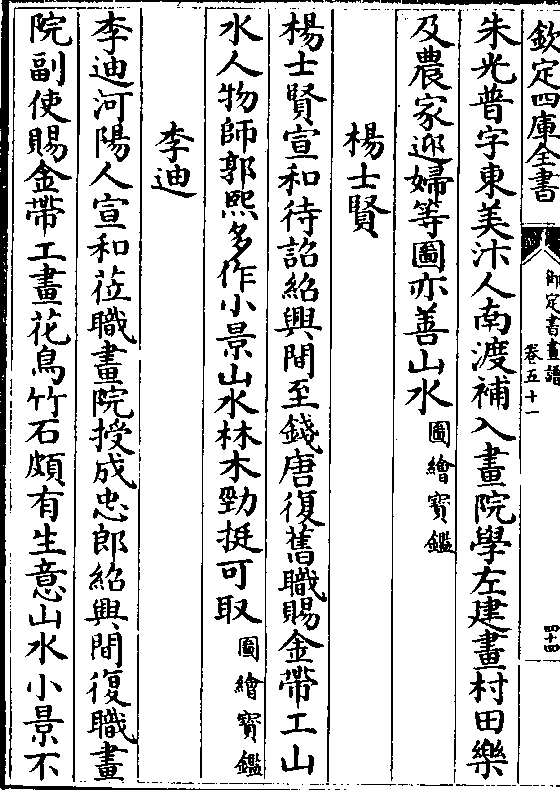 欽定四庫全書
御定書畫譜
卷五十一
四十四
朱光普字東美汴人南渡補入畫院學左建畫村田樂
及農家迎婦等圖亦善山水圖繪寳鑑
楊士賢
楊士賢宣和待詔紹興間至錢唐復舊職賜金帶工山
水人物師郭熙多作小景山水林木勁挺可取圖繪寳鑑
李迪
李迪河陽人宣和莅職畫院授成忠郎紹興間復職畫
院副使賜金帶工畫花鳥竹石頗有生意山水小景不